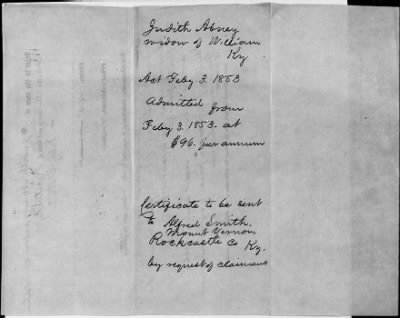 Judith Abney
widow of William
Ky
Act Feby 3. 1853
Admitted from
Feby 3. 1853. at
$96. per annum
Certificate to be sent
to Alfred Smith,
Mount Vernon
Rockcastle Co Ky.
by request of claimant